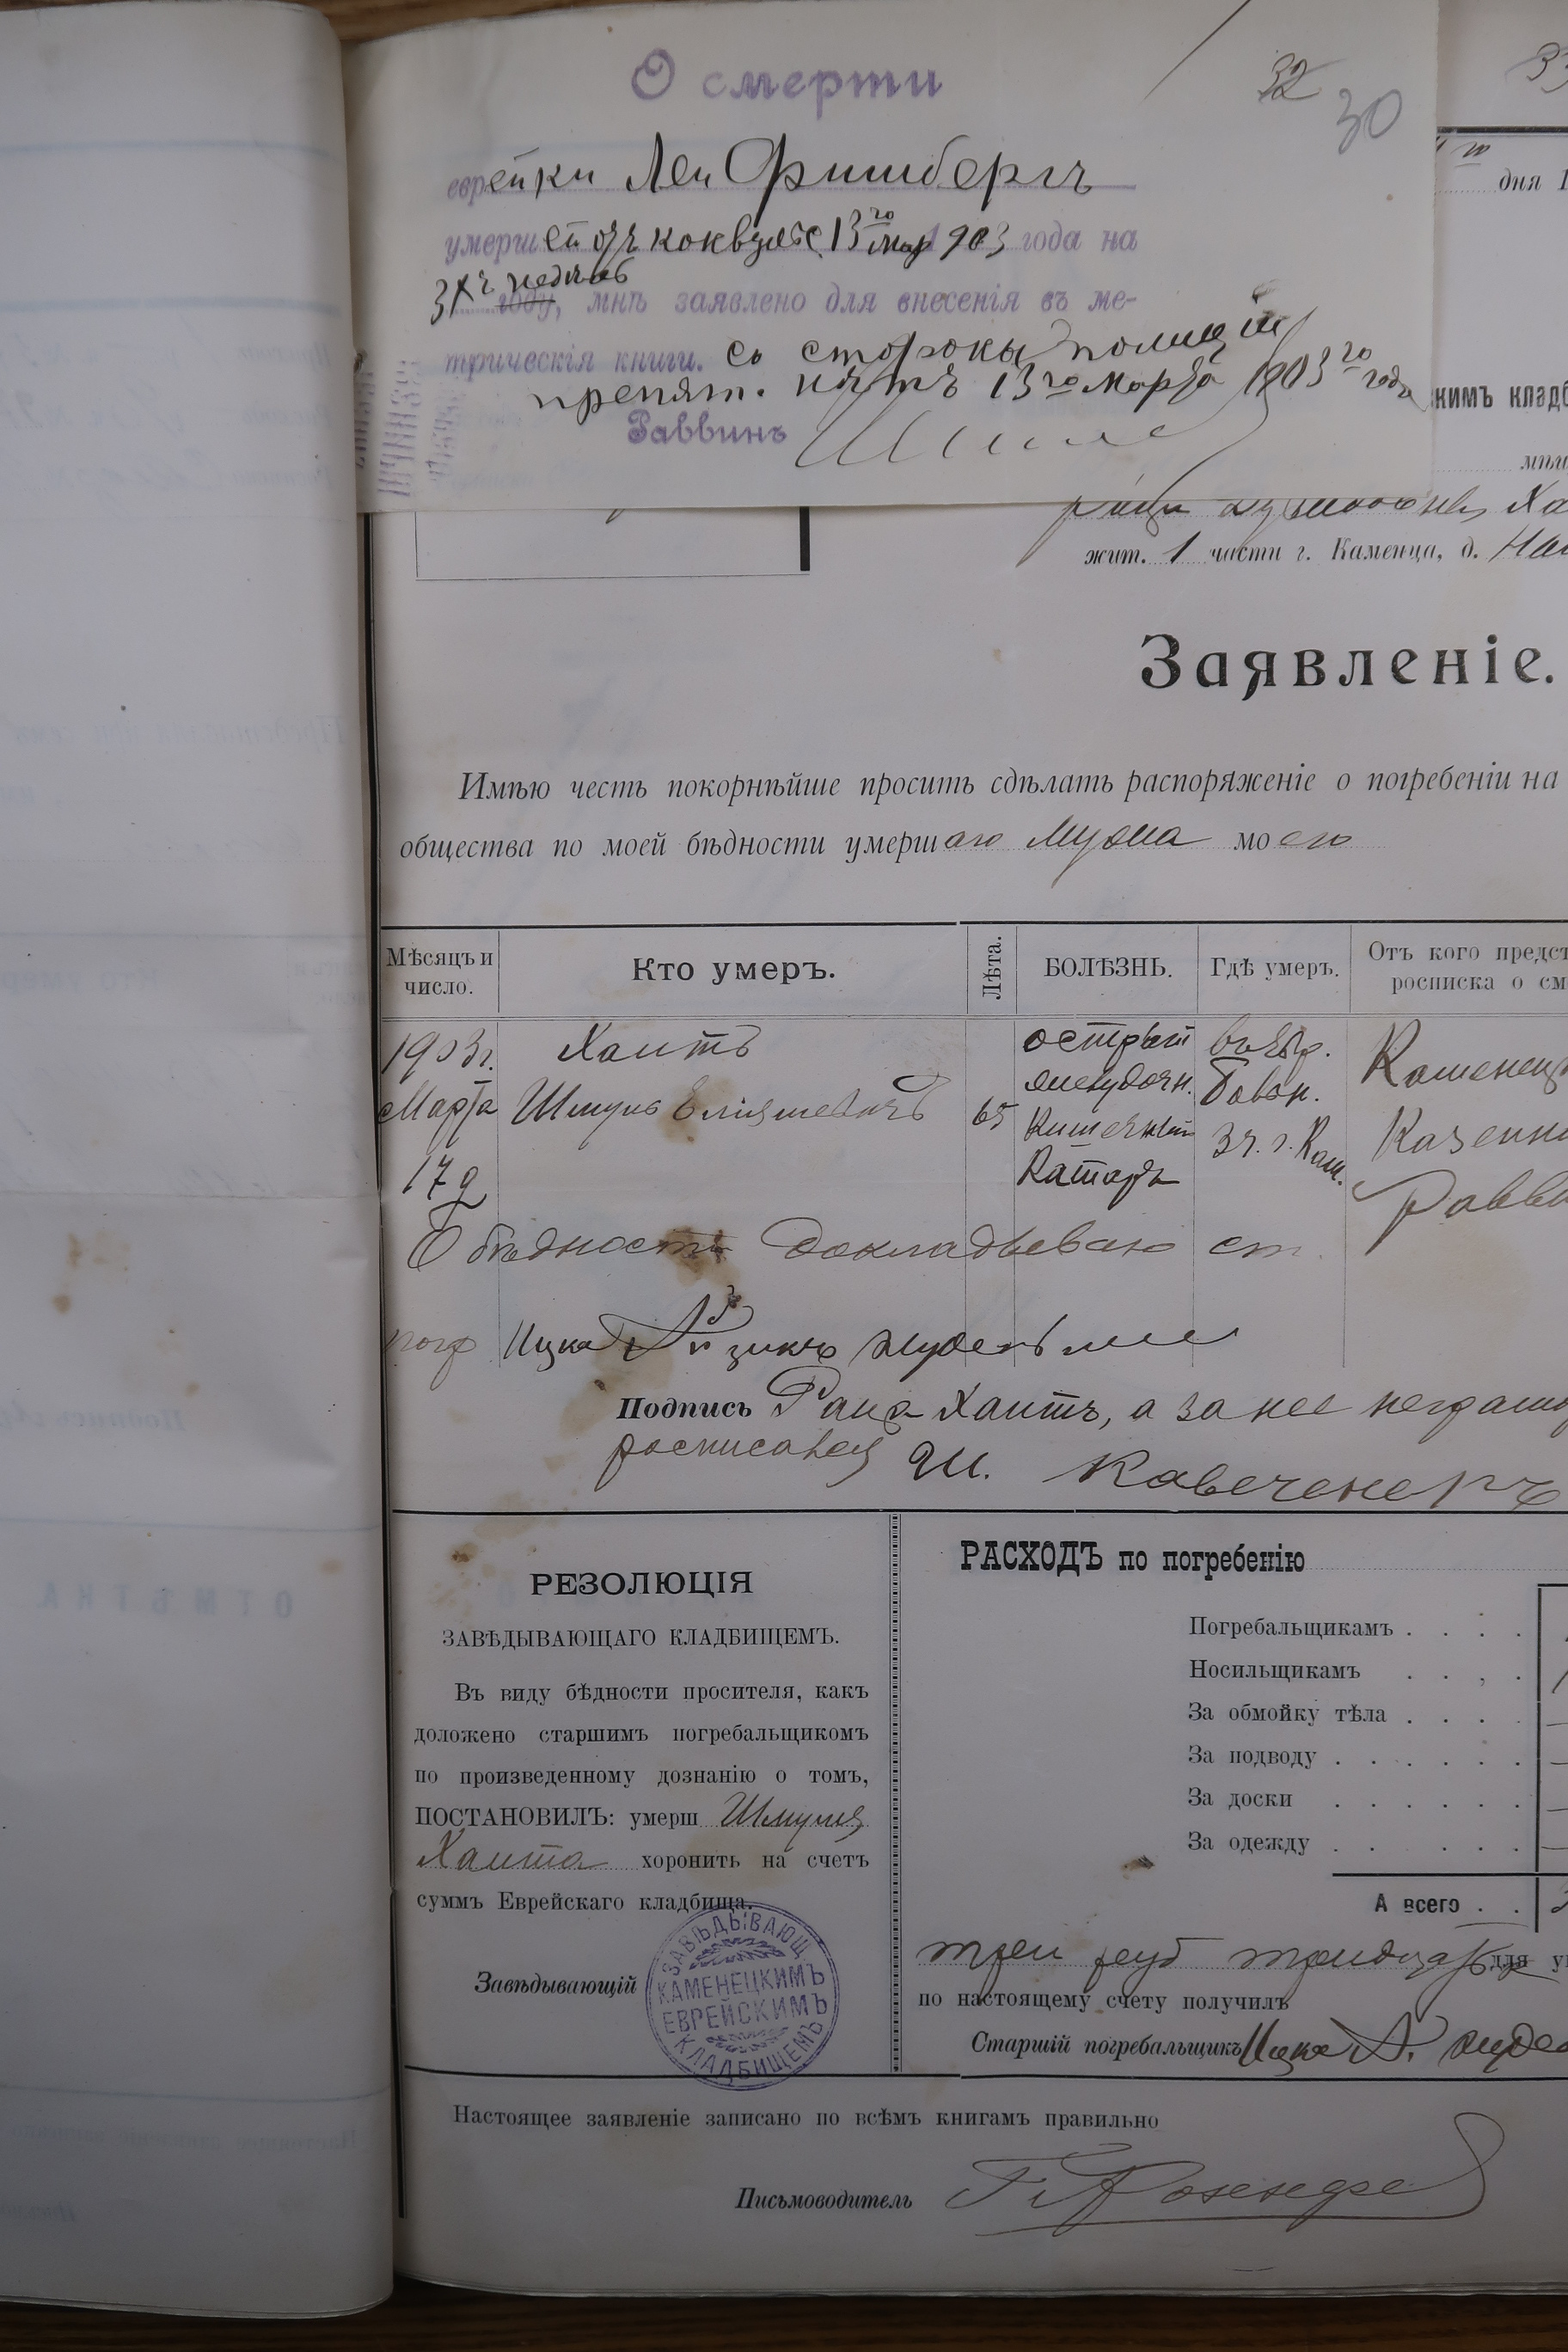 О смерти
32
30
33
еврейки Леи Фишбергъ
дня 1
умершей отъ коквлюс. 13го мар 903 года на
3хъ недѣль
году, мнѣ заявлено для внесенія въ ме-
трическія книги. Со стороны полиціи
препят. нѣтъ 13го Марта 1903го года
Раввинъ
кимъ кладб
жит. 1 части г. Каменца, д.
Заявленіе.
Имѣю честь покорнѣйше просить сдѣлать распоряженіе о погребеніи на
общества по моей бѣдности умершаго мужа моего
Мѣсяцъ и число.
Кто умеръ.
Лѣта.
БОЛѢЗНЬ.
Гдѣ умеръ.
Отъ кого предст
росписка о см
1903г. Марта 17 д
Хаитъ
Шмуль Еліяшевичъ
65
острый
желудочн.
Кишечный
Катаръ
въ Евр.
Бобьн.
3 ч. г. Кам.
Каменец
Казенн
Равви
О бѣдности докладываю ст.
погр Ицка Айзикъ
Подпись Раца Хаитъ, а за нее неграмо
росписался Ш.
РЕЗОЛЮЦІЯ
ЗАВѢДЫВАЮЩАГО КЛАДБИЩЕМЪ.
Въ виду бѣдности просителя, какъ
доложено старшимъ погребальщикомъ
по произведенному дознанію о томъ,
ПОСТАНОВИЛЪ: умерш Шмуля
Хаита хоронить на счетъ
суммъ Еврейскаго кладбища.
Завѣдывающій
ЗАВѢДЫВАЮЩ
КАМЕНЕЦКИМЪ
ЕВРЕЙСКИМЪ
КЛАДБИЩЕМЪ
РАСХОДЪ по погребенію
Погребальщикамъ
Носильщикамъ
За обмойку тѣла
За подводу
За доски
За одежду
А всего
три руб тридцать
по настоящему счету получилъ
Старшій погребальщикъ Ицка А.
Настоящее заявленіе записано по всѣмъ книгамъ правильно
Письмоводитель